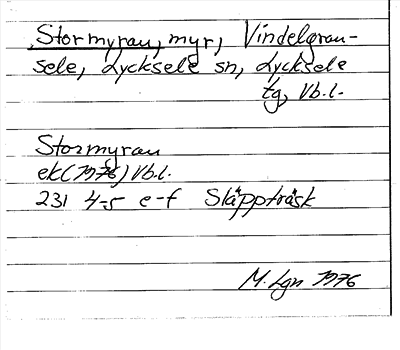 Stormyran, myr, Vindelgran-
sele, Lycksele sn, Lycksele
tg, Vb.l.
Stormyran
ek (1976) Vb.l.
231 4-5 e-f Släppträsk
M. Lgn 1976